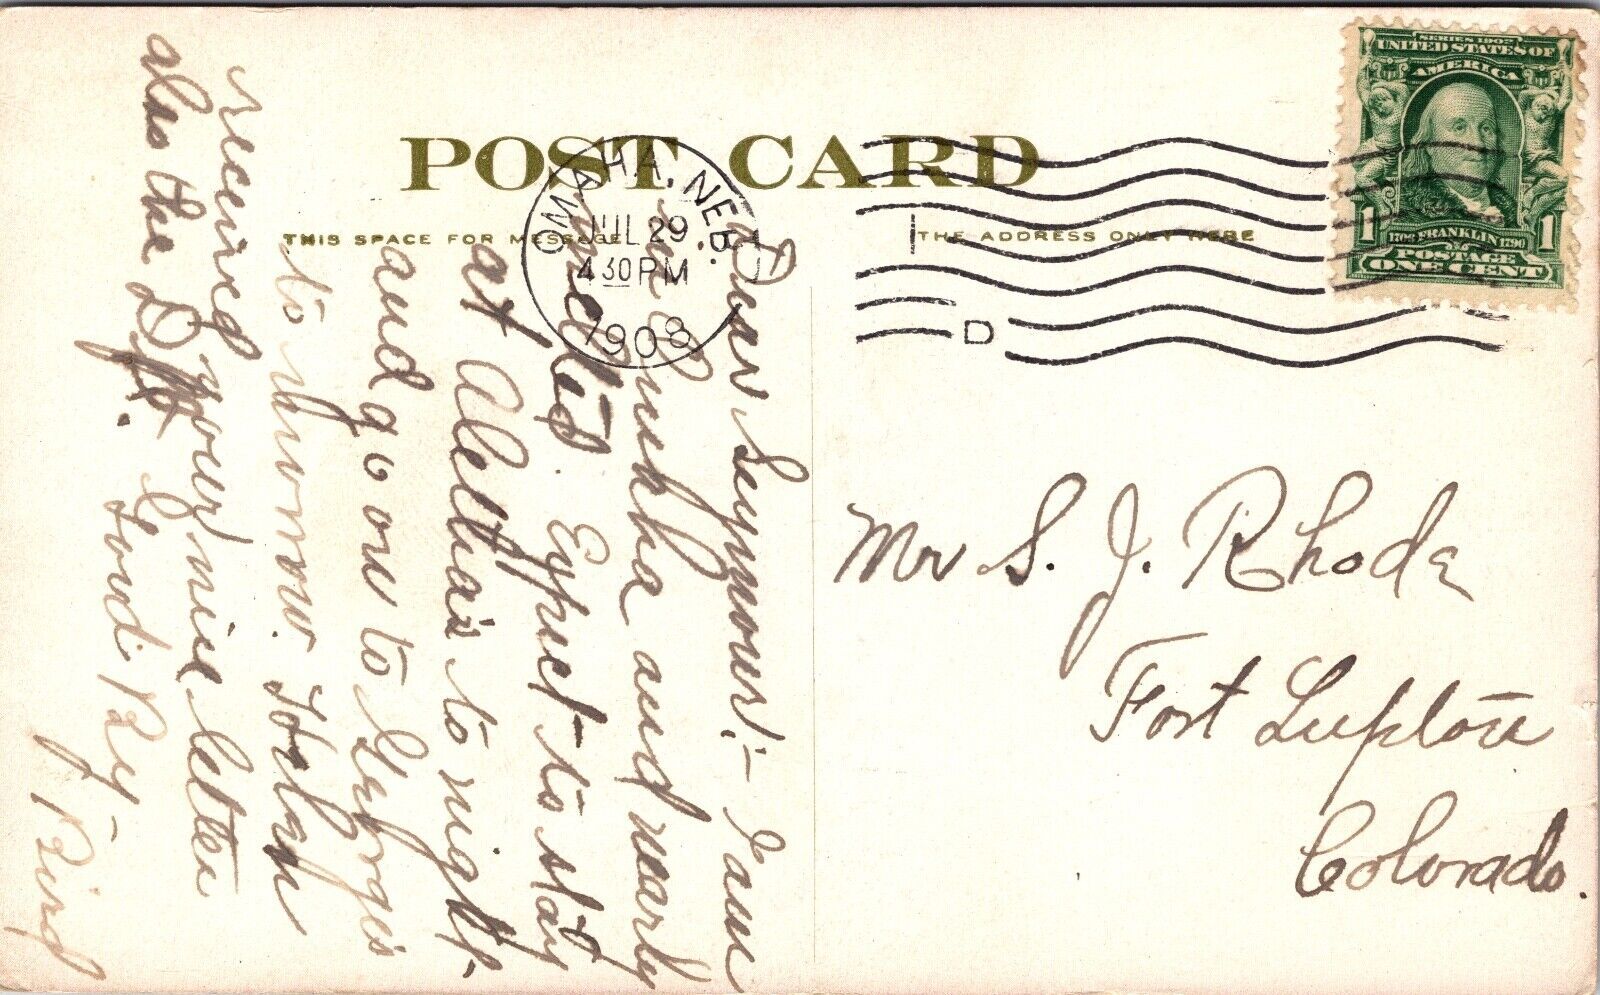 POST CARD
THIS SPACE FOR MESSAGE
THE ADDRESS ONLY HERE
OMAHA, NEB.
JUL 29
4 30 PM
1908
D
SERIES 1902
UNITED STATES OF
AMERICA
1 1
1706 FRANKLIN 1790
POSTAGE
ONE CENT
Dear Seymour:- I am
in Omaha and nearly
melted. Expect to stay
at Alettha's to night-
and go on to George's
to morrow.
receiving your nice letter
also the Good Bye-
Bird
Mr S. J. Rhode
Fort Lupton
Colorado.